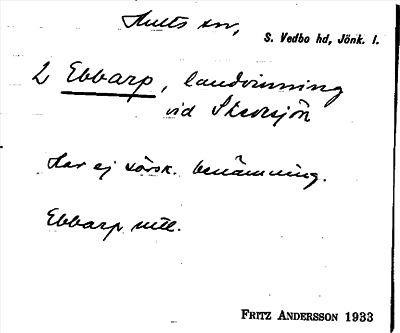 Hults sn,
S. Vedbo hd, Jönk. l.
2 Ebbarp, landvinning
vid Storsjön
Har ej särsk. benämning.
Ebbarp utt.
FRITZ ANDERSSON 1933